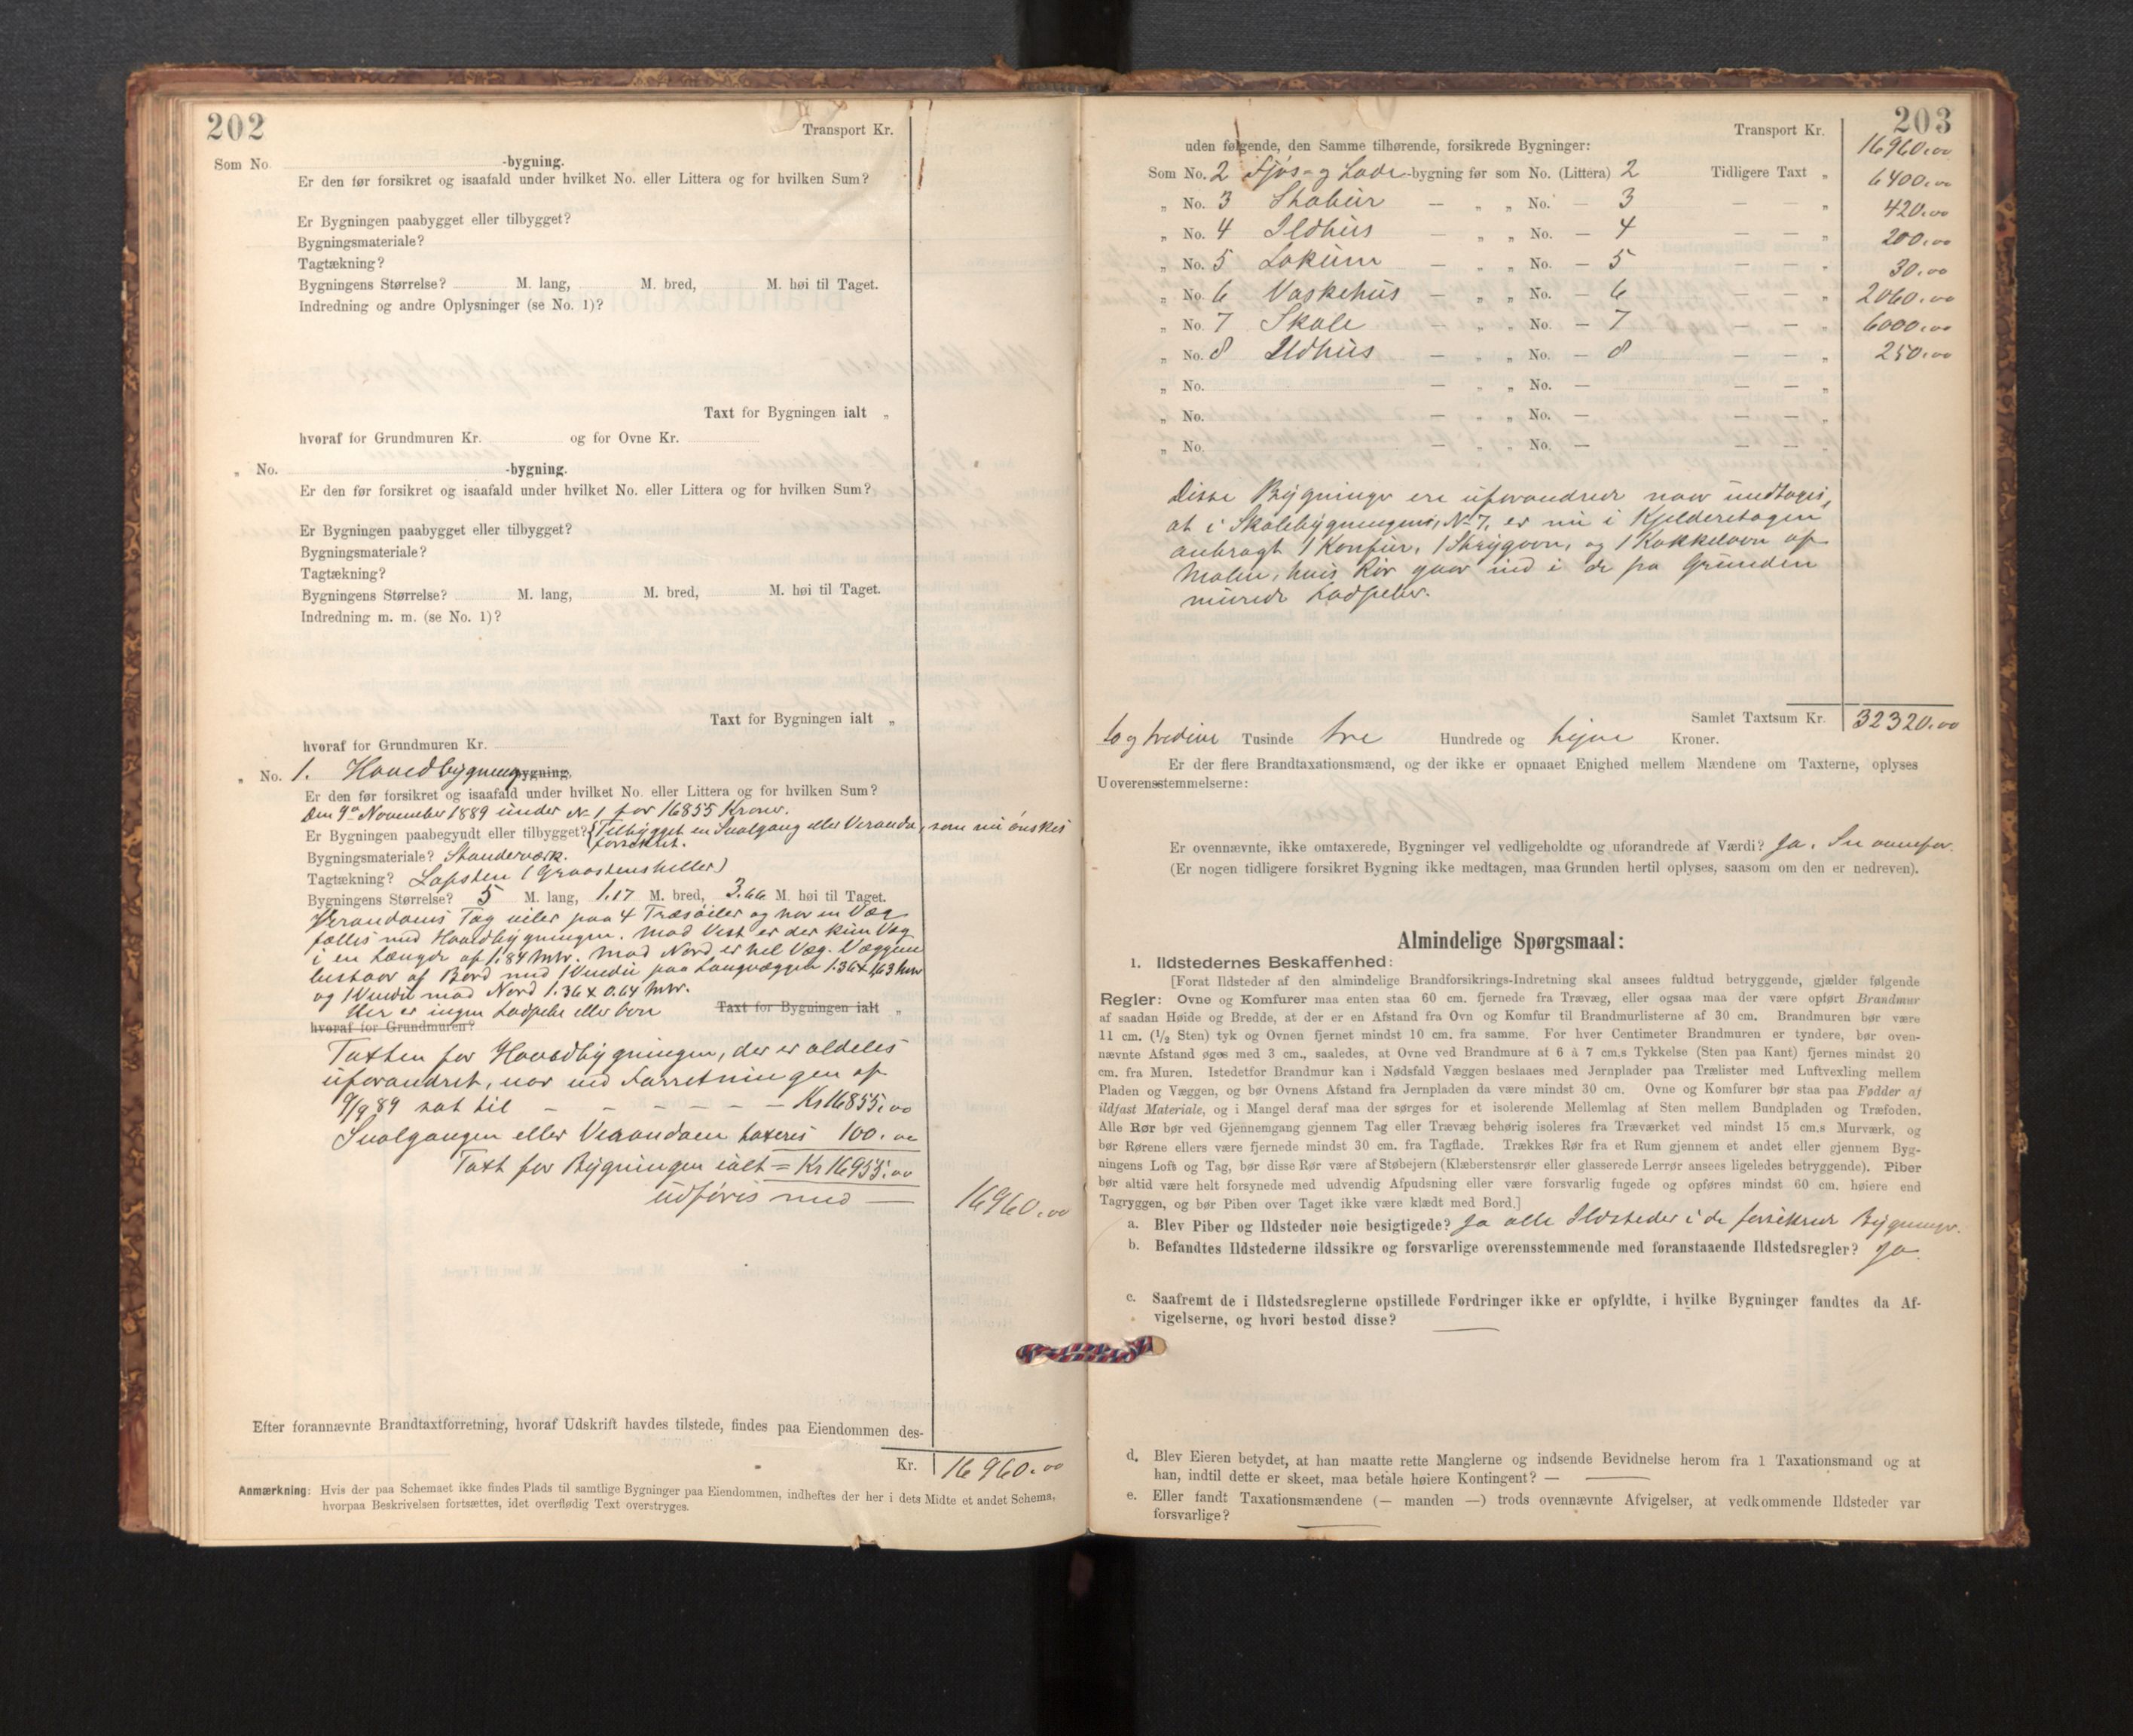 202
Transport Kr.
Som No. -bygning.
Er den før forsikret og isaafald under hvilket No. eller Littera og for hvilken Sum?
Er Bygningen paabygget eller tilbygget?
Bygningsmateriale?
Tagtækning?
Bygningens Størrelse? M. lang, M. bred, M. høi til Taget.
Indredning og andre Oplysninger (se No. 1)?
Taxt for Bygningen ialt „
hvoraf for Grundmuren Kr. og for Ovne Kr.
„ No. -bygning.
Er den før forsikret og isaafald under hvilket No. eller Littera og for hvilken Sum?
Er Bygningen paabygget eller tilbygget?
Bygningsmateriale?
Tagtækning?
Bygningens Størrelse? M. lang, M. bred, M. høi til Taget.
Indredning m. m. (se No. 1)?
Taxt for Bygningen ialt „
hvoraf for Grundmuren Kr.
„ No. 1. Hovedbygning bygning.
Er den før forsikret og isaafald under hvilket No. eller Littera og for hvilken Sum?
Den 9de November 1889 under No 1 for 16855 Kroner.
Er Bygningen paabegyndt eller tilbygget? Tilbygget en Svalgang eller Veranda, som nu ønskes
forsikret.
Bygningsmateriale? Standerværk.
Tagtækning? Lapsten (Graastensheller)
Bygningens Størrelse? 5 M. lang, 1.17 M. bred, 3.66 M. høi til Taget.
Verandaens Tag viler paa 4 Træsøiler og har en Væg
fælles med Hovedbygningen. Mod Vest er der kun Væg
i en Længde af 1.84 Mtr. Mod Nord er hel Væg. Væggene
bestaar af Bord med 1 Vindu paa Langvæggen 1.36 x 1.63 Mtr
og 1 Vindu mod Nord 1.36 x 0.64 Mtr.
Her er ingen Ladpibe eller Ovn Taxt for Bygningen ialt „
hvoraf for Grundmuren?
Taxten for Hovedbygningen, der er aldeles
uforandret, var ved Forretningen af
9/9 89 sat til – – – – – – Kr 16855.00
Svalgangen eller Verandaen taxeres 100.00
Taxt for Bygningen ialt = Kr 16955.00
udføres med — 16960.00
Efter forannævnte Brandtaxtforretning, hvoraf Udskrift havdes tilstede, findes paa Eiendommen des-
Kr. 16960.00
Anmærkning: Hvis der paa Schemaet ikke findes Plads til samtlige Bygninger paa Eiendommen, indheftes der her i dets Midte et andet Schema,
hvorpaa Beskrivelsen fortsættes, idet overflødig Text overstryges.
203
Transport Kr. 16960.00
uden følgende, den Samme tilhørende, forsikrede Bygninger:
Som No. 2 Fjøs- og Lade -bygning før som No. (Littera) 2 Tidligere Taxt „ 6400.00
„ No. 3 Stabur — „ „ No. — 3 — — „ 420.00
„ No. 4 Ildhus — „ „ No. — 4 — — „ 200.00
„ No. 5 Lokum — „ „ No. — 5 — — „ 30.00
„ No. 6 Vaskehus — „ „ No. — 6 — — „ 2060.00
„ No. 7 Skole — „ „ No. — 7 — — „ 6000.00
„ No. 8 Ildhus — „ „ No. — 8 — — „ 250.00
„ No. — „ „ No. — — — „
„ No. — „ „ No. — — — „
„ No. — „ „ No. — — — „
Disse Bygninger ere uforandrede naar undtages,
at i Skolebygningens, No 7, er nu i Kjelderetagen
anbragt 1 Komfur, 1 Strygovn, og 1 Kakkelovn af
Malm, hvis Rør gaar ind i de fra Grunden
murede Ladpiber.
Samlet Taxtsum Kr. 32320.00
to og tredive Tusinde tre Hundrede og tyve Kroner.
Er der flere Brandtaxationsmænd, og der ikke er opnaaet Enighed mellem Mændene om Taxterne, oplyses
Uoverensstemmelserne:
Er ovennævnte, ikke omtaxerede, Bygninger vel vedligeholdte og uforandrede af Værdi? Ja. Se ovenfor.
(Er nogen tidligere forsikret Bygning ikke medtagen, maa Grunden hertil oplyses, saasom om den er nedreven).
Almindelige Spørgsmaal:
1. Ildstedernes Beskaffenhed:
[Forat Ildsteder af den almindelige Brandforsikrings-Indretning skal ansees fuldtud betryggende, gjælder følgende
Regler: Ovne og Komfurer maa enten staa 60 cm. fjernede fra Trævæg, eller ogsaa maa der være opført Brandmur
af saadan Høide og Bredde, at der er en Afstand fra Ovn og Komfur til Brandmurlisterne af 30 cm. Brandmuren bør være
11 cm. (1/2 Sten) tyk og Ovnen fjernet mindst 10 cm. fra samme. For hver Centimeter Brandmuren er tyndere, bør oven-
nævnte Afstand øges med 3 cm., saaledes, at Ovne ved Brandmure af 6 à 7 cm.s Tykkelse (Sten paa Kant) fjernes mindst 20
cm. fra Muren. Istedetfor Brandmur kan i Nødsfald Væggen beslaaes med Jernplader paa Trælister med Luftvexling mellem
Pladen og Væggen, og bør Ovnens Afstand fra Jernpladen da være mindst 30 cm. Ovne og Komfurer bør staa paa Fødder af
ildfast Materiale, og i Mangel deraf maa der sørges for et isolerende Mellemlag af Sten mellem Bundpladen og Træfoden.
Alle Rør bør ved Gjennemgang gjennem Tag eller Trævæg behørig isoleres fra Træværket ved mindst 15 cm.s Murværk, og
bør Rørene ellers være fjernede mindst 30 cm. fra Tagflade. Trækkes Rør fra et Rum gjennem et andet eller gjennem Byg-
ningens Loft og Tag, bør disse Rør være af Støbejern (Klæberstensrør eller glasserede Lerrør ansees ligeledes betryggende). Piber
bør altid være helt forsynede med udvendig Afpudsning eller være forsvarlig fugede og opføres mindst 60 cm. høiere end
Tagryggen, og bør Piben over Taget ikke være klædt med Bord.]
a. Blev Piber og Ildsteder nøie besigtigede? Ja alle Ildsteder i de forsikrede Bygninger.
b. Befandtes Ildstederne ildssikre og forsvarlige overensstemmende med foranstaaende Ildstedsregler? Ja.
c. Saafremt de i Ildstedsreglerne opstillede Fordringer ikke er opfyldte, i hvilke Bygninger fandtes da Af-
vigelserne, og hvori bestod disse? —
d. Blev Eieren betydet, at han maatte rette Manglerne og indsende Bevidnelse herom fra 1 Taxationsmand og at
han, indtil dette er skeet, maa betale høiere Kontingent? — —
e. Eller fandt Taxationsmændene (— manden —) trods ovennævnte Afvigelser, at vedkommende Ildsteder var
forsvarlige? —